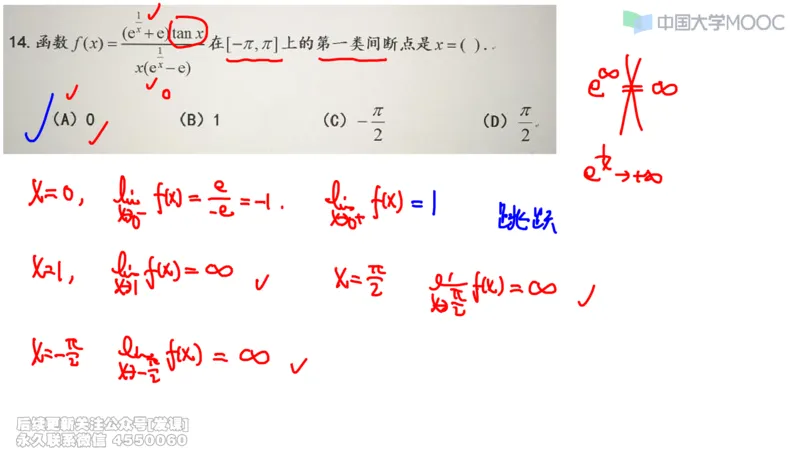 中国大学MOOC
14. 函数 f(x) = (e^{1/x}+e)tan x / x(e^{1/x}−e) 在[−π,π]上的第一类间断点是 x=( ).
(A) 0 (B) 1 (C) −π/2 (D) π/2
0
e^∞ ∞
e^{1/x}→+∞
x=0, lim x→0⁻ f(x) = e/−e = −1. lim x→0⁺ f(x) = 1 跳跃
x=1, lim x→1 f(x) = ∞ ✓ x=π/2 lim x→π/2 f(x) = ∞ ✓
x=−π/2 lim x→−π/2 f(x) = ∞ ✓
后续更新关注公众号[发课]
永久联系微信 4550060